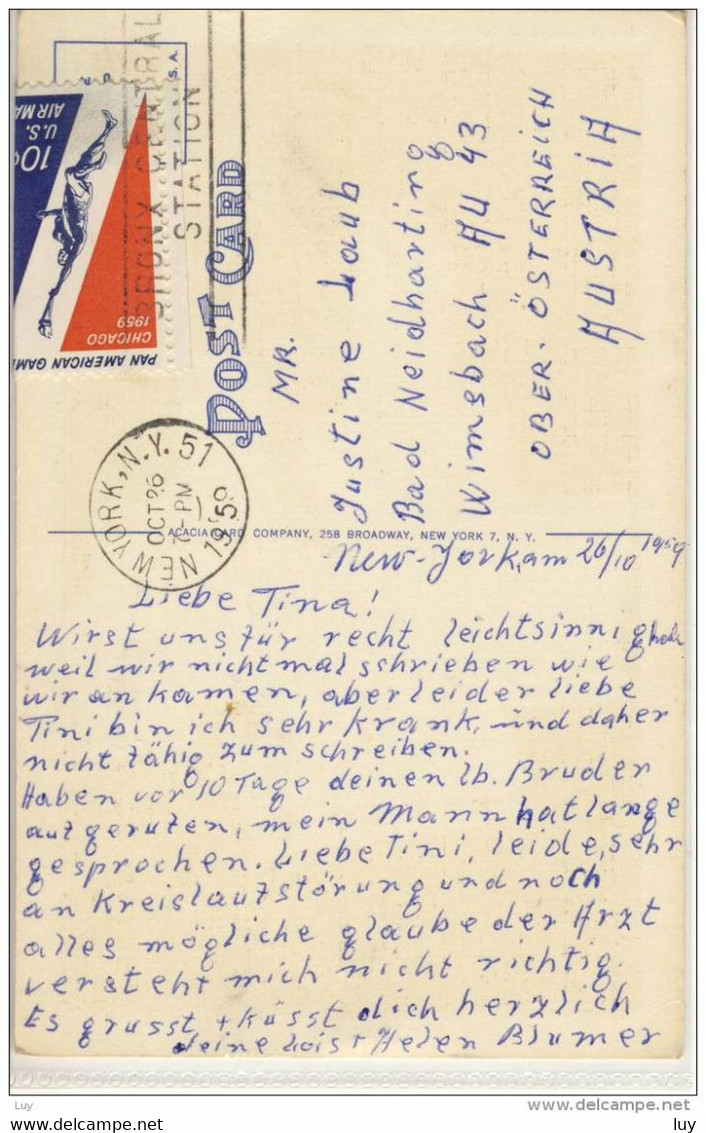 U.S.A.
10¢
U.S.
AIR MA
CHICAGO
1959
PAN AMERICAN GAM
BRONX CENTRAL
STATION
NEW YORK, N.Y. 51
OCT 26
PM
1959
POST CARD
MR.
Justine Laub
Bad Neidharting
Wimsbach AU 43
OBER-ÖSTERREICH
AUSTRIA
ACACIA CARD COMPANY, 258 BROADWAY, NEW YORK 7, N. Y.
New-York, am 26/10 1959
Liebe Tina!
Wirst uns für recht leichtsinnig
weil wir nicht mal schrieben wie
wir an kamen, aber leider liebe
Tini bin ich sehr krank, und daher
nicht fähig zum schreiben.
Haben vor 10 Tage deinen lb. Bruder
aufgerufen, mein Mann hat lange
gesprochen. Liebe Tini, leide, sehr
an Kreislaufstörung und noch
alles mögliche glaube der Arzt
versteht mich nicht richtig.
Es grusst + küsst dich herzlich
deine Lois + Helen Blumer
Luy
delcampe.net
www.delcampe.com
luy